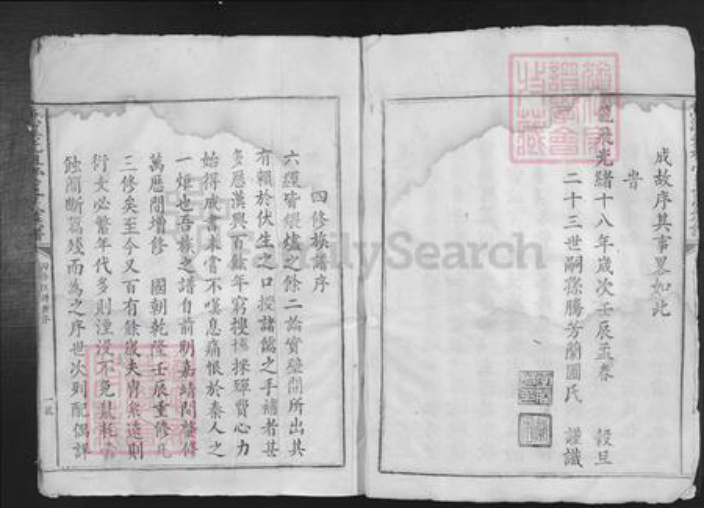 成故序其事畧如此
旹
龍飛光緒十八年歲次壬辰孟春 穀旦
二十三世嗣孫騰芳蘭圃氏 謹識
四修族譜序
六經皆煨爐之餘二論實壁間所出其
有賴於伏生之口授諸儒之手補者甚
多歷漢興百餘年窮搜博採殫費心力
始得成書未嘗不嘆息痛恨於秦人之
一炬也吾族之譜自前明嘉靖間
萬歷間增修 國朝乾隆壬辰重修凡
三修矣至今又百有餘歲夫冑系遠則
衍文必繁年代多則湮沒不免
蝕簡斷篇殘而為之序世次列配偶詳
FamilySearch